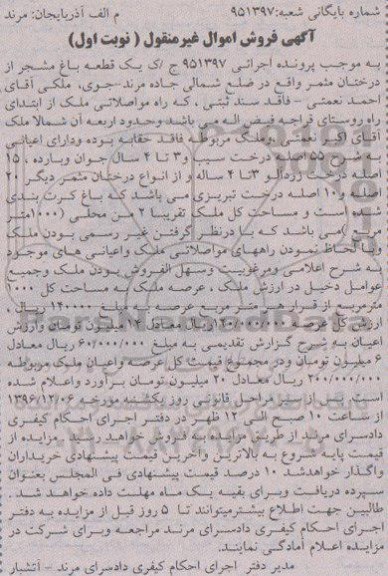 شماره بایگانی شعبه:۹۵۱۳۹۷ م الف آذربایجان: مرند
آگهی فروش اموال غیرمنقول ( نوبت اول)
به موجب پرونده اجرائی ۹۵۱۳۹۷ ج /ک یک قطعه باغ مشجر از
درختان مثمر واقع در ضلع شمالی جاده مرند-جوی، ملکی آقای
احمد نعمتی - فاقد سند ثبتی ، که راه مواصلاتی ملک از ابتدای
راه روستای قراجه فیض اله می باشد وحدود اربعه آن شمالا ملک
آقای اکبر نعمتی وملک مربوطه فاقد حقابه بوده ودارای اعیانی
به شرح ۵۵ اصله درخت سیب و۳ تا ۴ سال جوان وبارده ، ۱۵
اصله درخت زردآلو ۳تا ۴ ساله و از انواع درختان مثمر دیگر ۲۰
اصله و۱۰ اصله درخت تبریزی می باشد که باغ کرت بندی
شده است و مساحت کل ملک تقریبا ۲ من محلی (۱۰۰۰متر
مربع )می باشد که با درنظر گرفتن غیر رسمی بودن ملک
وبا لحاظ نمودن راههای مواصلاتی ملک واعیانی های موجود
به شرح اعلامی ومرغوبیت وسهل الفروش بودن ملک وجمیع
عوامل دخیل در ارزش ملک ، عرصه ملک به مساحت کل ۱۰۰۰
مترمربع از قرار هر متر مربع عرصه به مبلغ ۱۴۰۰۰۰ ریال ،
ارزش کل عرصه ۱۴۰/۰۰۰/۰۰۰ریال معادل ۱۴ میلیون تومان وارزش
اعیان به شرح گزارش تقدیمی به مبلغ ۶۰/۰۰۰/۰۰۰ ریال معادل
۶ میلیون تومان ودر مجموع قیمت کل عرصه واعیان ملک مربوطه
۲۰۰/۰۰۰/۰۰۰ ریال معادل ۲۰ میلیون تومان برآورد واعلام شده
است. پس از سیر مراحل قانونی روز یکشنبه مورخه ۱۳۹۶/۱۲/۰۶
از ساعت ۱۰ صبح الی ۱۲ ظهر در دفتر اجرای احکام کیفری
دادسرای مرند از طریق مزایده به فروش خواهد رسید. مزایده از
قیمت پایه شروع به بالاترین وآخرین قیمت پیشنهادی خریداران
واگذار خواهدشد. ۱۰ درصد قیمت پیشنهادی فی المجلس بعنوان
سپرده دریافت وبرای بقیه یک ماه مهلت داده خواهد شد .
طالبین جهت اطلاع بیشترمیتوانند تا ۵ روز قبل از مزایده به دفتر
اجرای احکام کیفری دادسرای مرند مراجعه وبرای شرکت در
مزایده اعلام آمادگی نمایند.
مدیر دفتر اجرای احکام کیفری دادسرای مرند - آتشبار